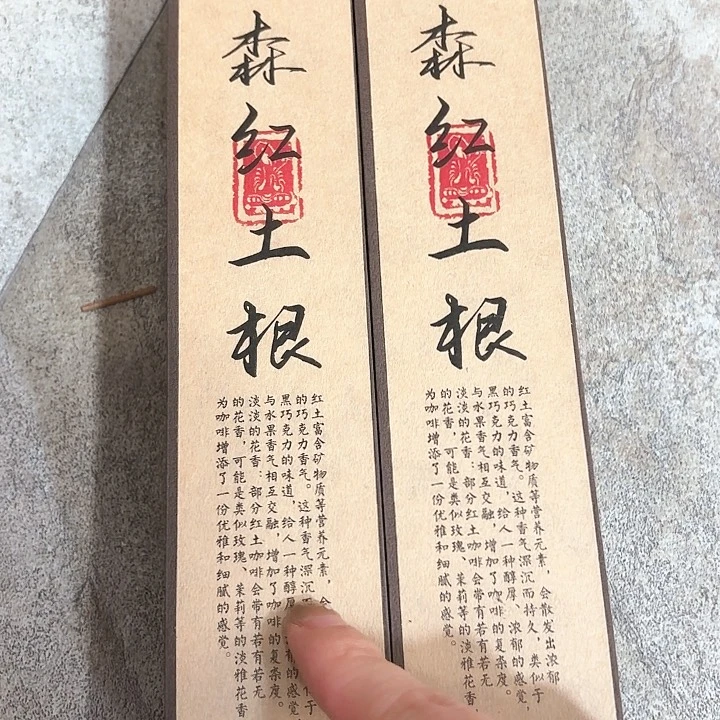 森红土根
红土富含矿物质等营养元素，会
的巧克力香气。这种香气深沉 于
黑巧克力的味道，给人一种醇厚 郁的感觉，
与水果香气相互交融，增加了咖啡的复杂度。
淡淡的花香：部分红土咖啡会带有若有若无
的花香，可能是类似玫瑰、茉莉等的淡雅花香
为咖啡增添了一份优雅和细腻的感觉。
森红土根
红土富含矿物质等营养元素，会散发出浓郁
的巧克力香气。这种香气深沉而持久，类似于
黑巧克力的味道，给人一种醇厚、浓郁的感觉，
与水果香气相互交融，增加了咖啡的复杂度。
淡淡的花香：部分红土咖啡会带有若有若无
的花香，可能是类似玫瑰、茉莉等的淡雅花香
为咖啡增添了一份优雅和细腻的感觉。